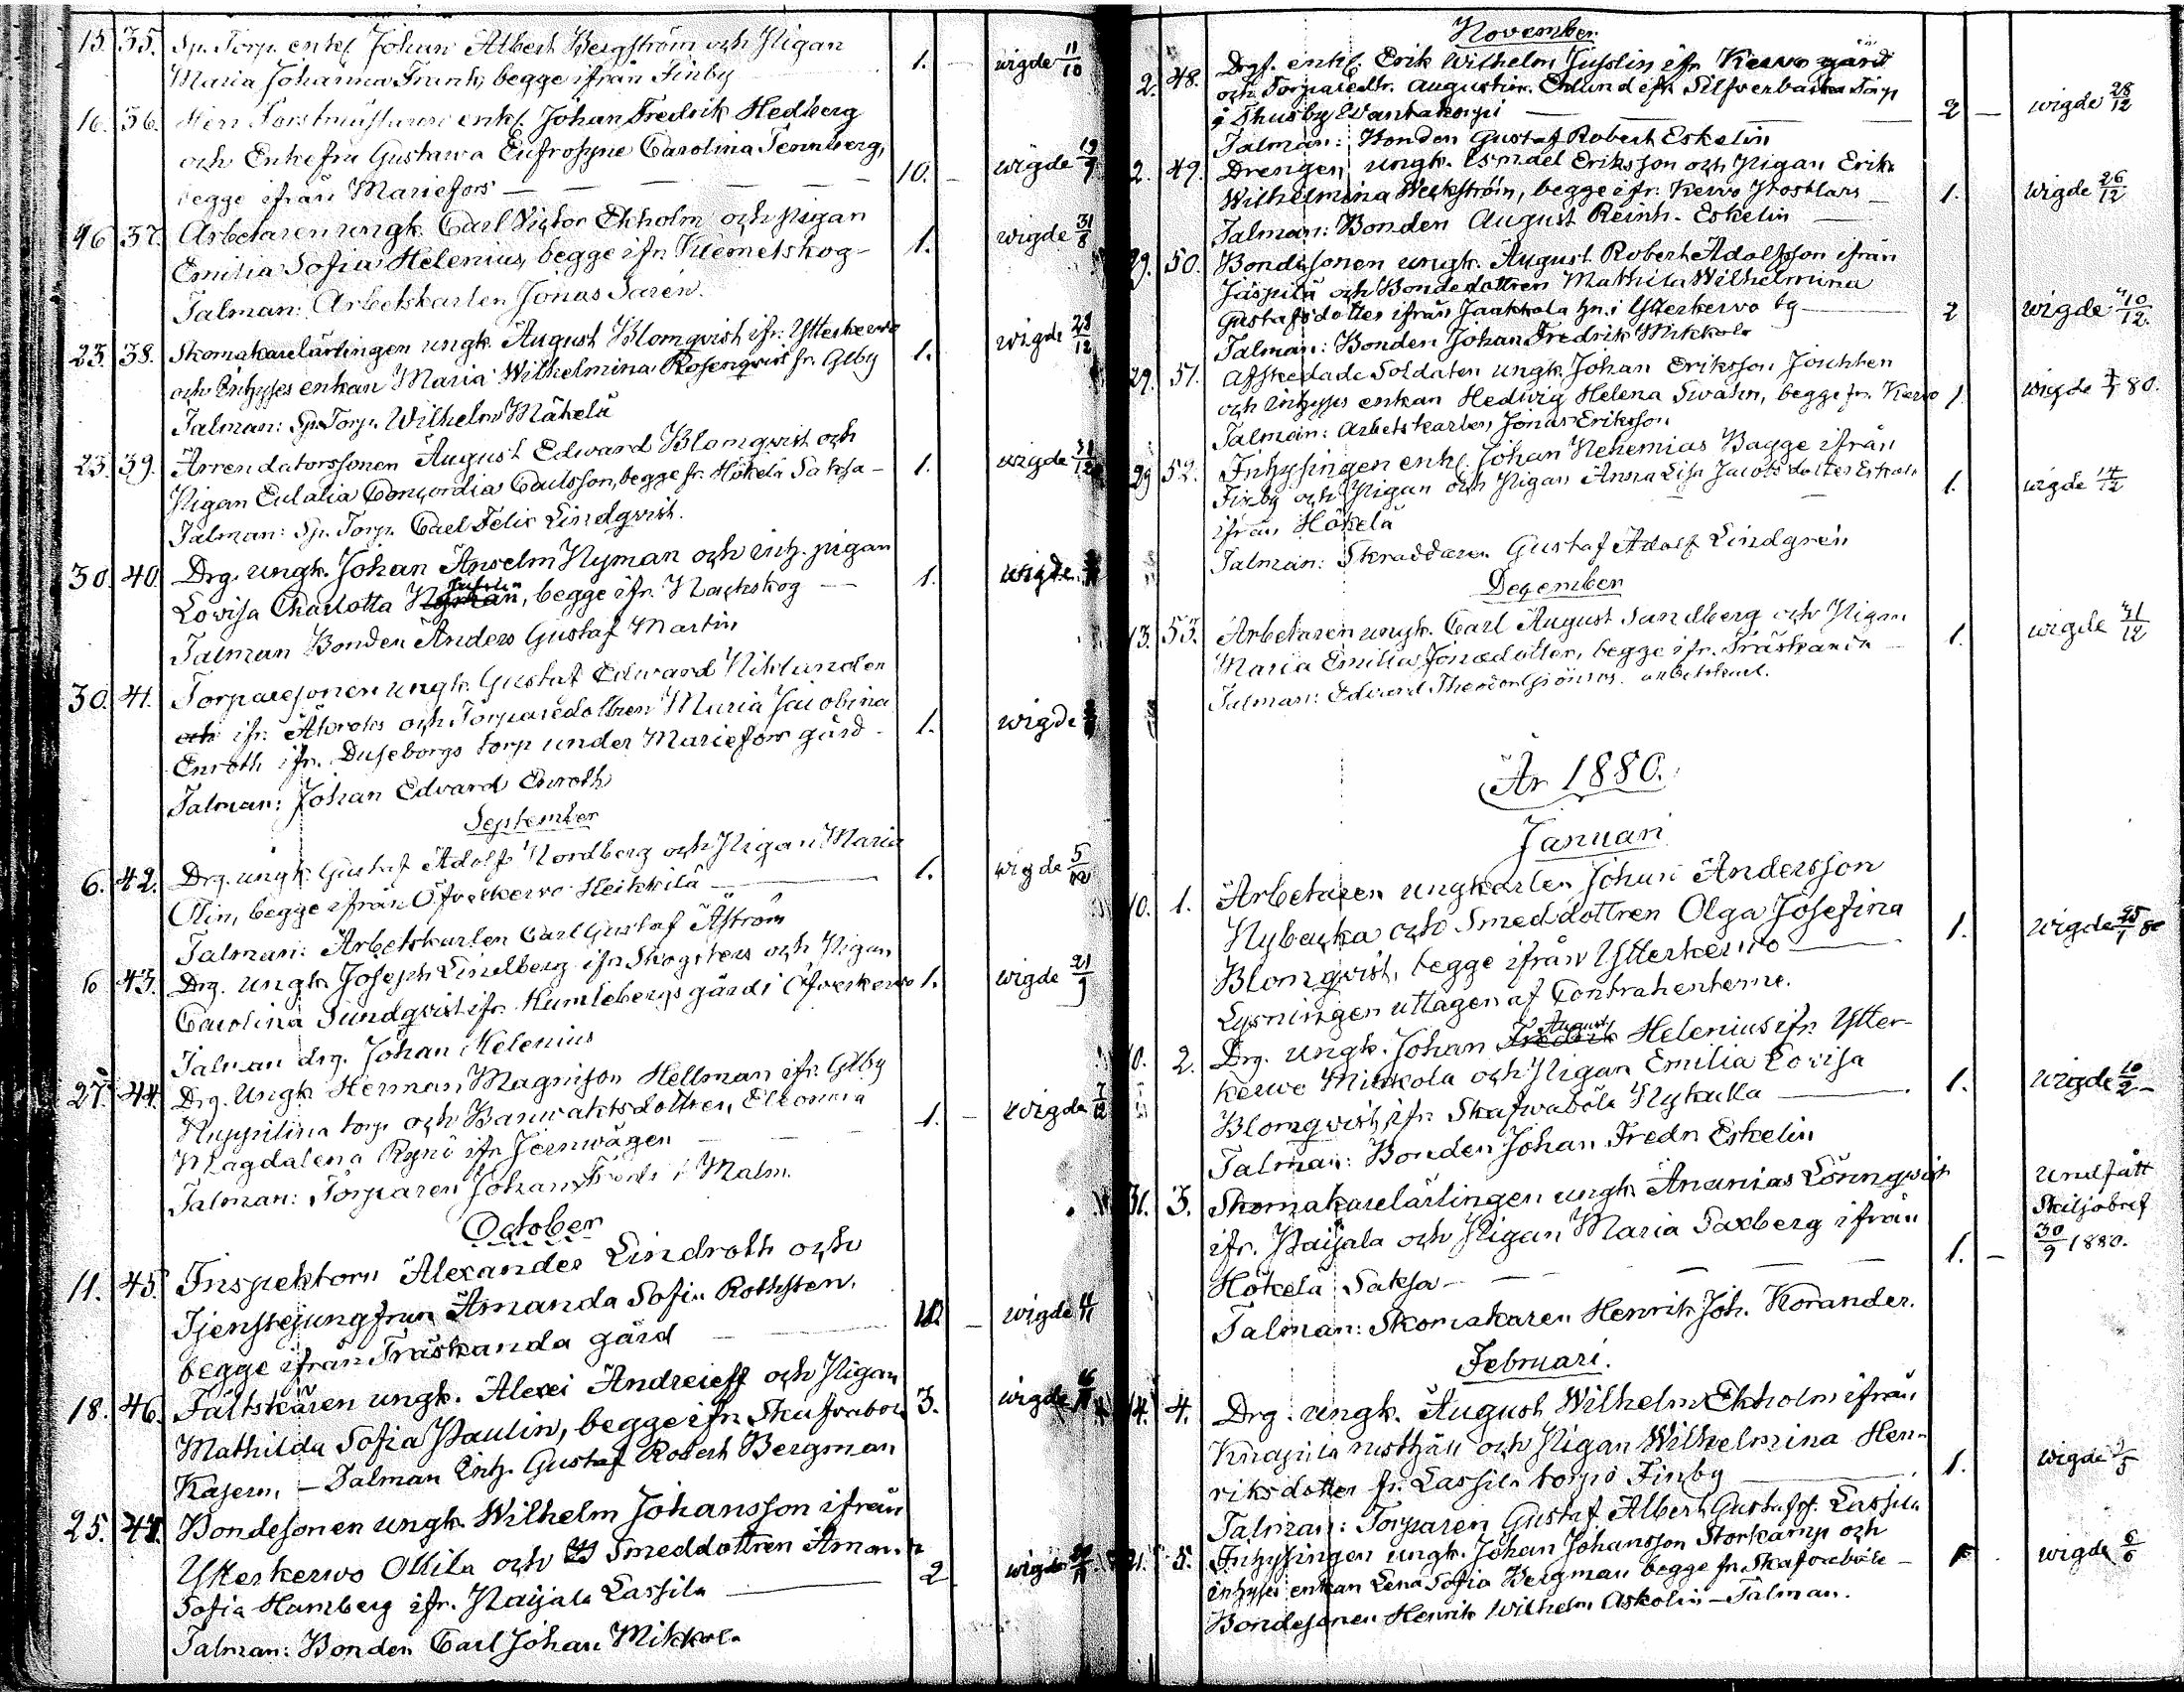 15. 35. Sp. Torp. enkl. Johan Albert Bergström och Pigan
Maria Johanna Frank, begge ifrån Finby 1. wigde 11/10
16. 36. Herr Forstmästaren enkl. Johan Fredrik Hedberg
och Enkefru Gustawa Eufrosyne Carolina Tennberg,
begge ifrån Mariefors 10. wigde 19/9
37. Arbetaren ungk. Carl Victor Ekholm och pigan
Emilia Sofia Helenius, begge ifr. Klemetskog 1. wigde 31/8
Talman: Arbetskarlen Jonas Sarén.
23. 38. Skomakarelärlingen ungk. August Blomqvist ifr. Ytterkerwo
och Inhyses enkan Maria Wilhelmina Rosenqvist fr. Glby 1. wigde 28/12
Talman: Sp. Torp. Wilhelm Mäkelä
23. 39. Arrendatorssonen August Edward Blomqvist och
Pigan Eulalia Concordia Carlsson, begge fr. Hökelä Saksa 1. wigde
Talman: Sp. Torp. Carl Felix Lindqvist.
30. 40. Drg. ungk. Johan Anselm Nyman och inh. pigan
Lovisa Charlotta Nyman, begge ifr. Nackskog 1. wigde
Talman Bonden Anders Gustaf Martin
30. 41. Torparesonen ungk. Gustaf Edward Niklander
och ifr. Åkroks och Torparedottren Maria Jacobina
Enroth ifr. Duseborgs torp under Mariefors gård 1. wigde
Talman: Johan Edvard Enroth
September
6. 42. Drg. ungk. Gustaf Adolf Nordberg och Pigan Maria
Olin, begge ifrån Öfverkerwo Heikkilä 1. wigde
Talman: Arbetskarlen Carl Gustaf Åström
6 43. Drg. ungk. Joseph Lindberg ifr. Skogsters och Pigan
Carolina Sundqvist ifr. Humlebergs gård i Öfverkerwo 1. wigde 21/9
Talman drg. Johan Helenius
27. 44. Drg. Ungk. Herman Magnsson Hellman ifr. Glby
Huppilina torp och Banvaktsdottren, Eleonora
Magdalena Ryni ifr. Jernwägen 1. wigde 7/12
Talman: Torparen Johan Fredr. Malm.
October
11. 45. Inspektorn Alexander Lindroth och
Tjenstejungfrun Amanda Sofia Rothsten,
begge ifrån Träskanda gård 10 wigde
18. 46. Fältskären ungk. Alexei Andreieff och Pigan
Mathilda Sofia Paulin, begge ifr. Skafvaböle 3. wigde
Kasern, — Talman Inh. Gustaf Robert Bergman
25. 47. Bondesonen ungk. Wilhelm Johansson ifrån
Ytterkerwo Ollila och Smeddottren Amanda
Sofia Hamberg ifr. Paijala Lassila 2 wigde
Talman: Bonden Carl Johan Mikkola
November
2. 48. Drgs. enkl. Erik Wilhelm Jusslin ifr. Kerwo gård
och Torparedtr. Augustina Edlund ifr. Silfverbacka Torp
i Thusby Wantakoski 2 wigde 28/12
Talman: Bonden Gustaf Robert Eskelin
2. 49. Drengen ungk. Ismael Eriksson och Pigan Erika
Wilhelmina Weckström, begge ifr. Kerwo Prostlars 1. wigde 26/12
Talman: Bonden August Reinh. Eskelin
29. 50. Bondesonen ungk. August Robert Adolfsson ifrån
Jäspilä och Bondedottren Mathilda Wilhelmina
Gustafsdotter ifrån Jaakkola hn. i Ytterkerwo by 2 wigde
Talman: Bonden Johan Fredrik Mikkola
29. 51. Afskedade Soldaten ungk. Johan Eriksson Jouhten
och inhyses enkan Hedwig Helena Swahn, begge fr. Kerwo 1. wigde 80.
Talman: Arbetskarlen Jonas Eriksson
29 52. Inhysingen enkl. Johan Nehemias Bagge ifrån
Finby och Pigan och Pigan Anna Lisa Jacobsdotter
ifrån Hökelä 1. wigde 14/12
Talman: Skräddaren Gustaf Adolf Lindgrén
December
13. 53. Arbetaren ungk. Carl August Sandberg och Pigan
Maria Emilia Jonædotter, begge ifr. Träskända 1. wigde 31/12
Talman: Edvard Theodor arbetskarl.
År 1880.
Januari
10. 1. Arbetaren ungkarlen Johan Andersson
Nybacka och Smeddottren Olga Josefina
Blomqvist, begge ifrån Ytterkerwo 1. wigde 25/1 80
Lysningen uttagen af Contrahenterne.
10. 2. Drg. ungk. Johan Fredrik August Helenius ifr. Ytter-
kerwo Mikkola och Pigan Emilia Lovisa
Blomqvist, ifr. Skafwaböle Nykulla 1. wigde 10/2
Talman: Bonden Johan Fredr Eskelin
31. 3. Skomakarelärlingen ungk. Ananias Lönnqvist
ifr. Paijala och Pigan Maria Saxberg ifrån
Hökelä Saksa 1. Undfått Skiljobref 30/9 1880.
Talman: Skomakaren Henrik Joh. Korander.
Februari.
14. 4. Drg. ungk. August Wilhelm Ekholm ifrån
Knapila rusthåll och Pigan Wilhelmina Hen-
riksdotter fr. Lassila torp i Finby 1. wigde
Talman: Torparen Gustaf Albert Gustafss. Lassila
21. 5. Inhysingen ungk. Johan Johansson Storkamp och
inhyses enkan Lena Sofia Bergman begge fr. Skafvaböle 1. wigde 6/6
Bondesonen Henrik Wilhelm Askolin — Talman.